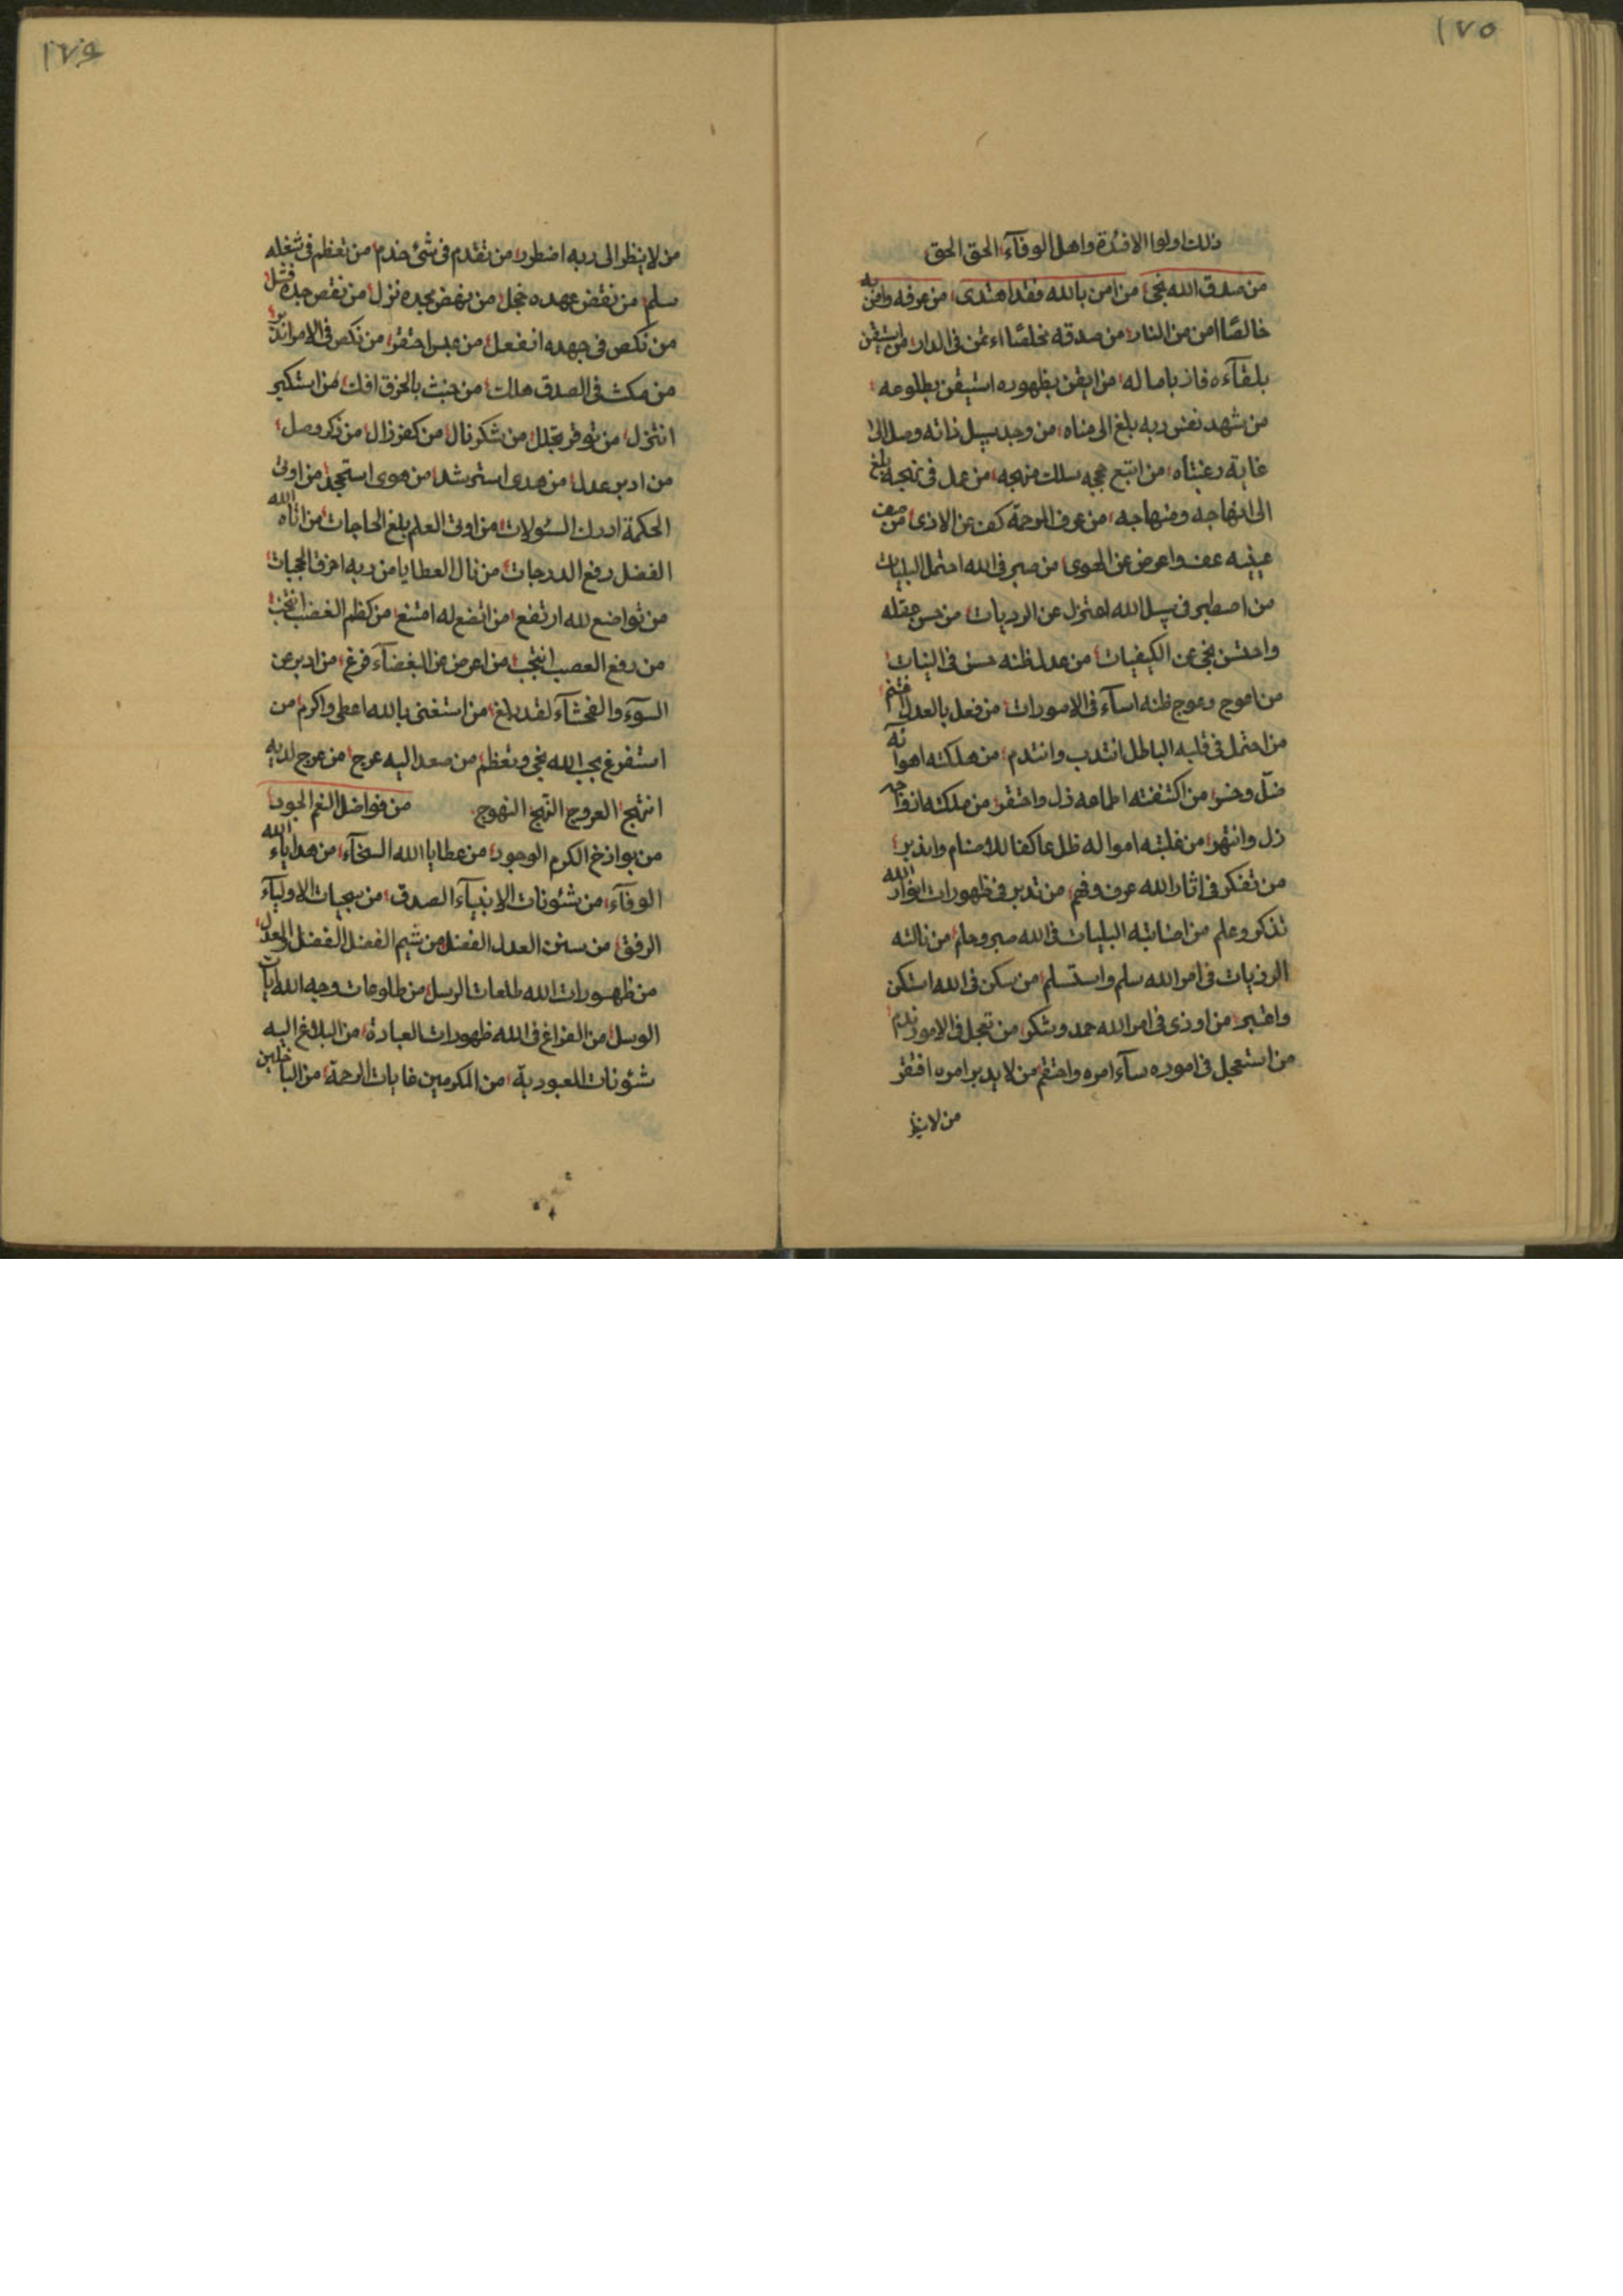 ١٧٥
ذلك اولوا الافئدة واهل الوفآء الحق الحق
من صدق الله نجى من امن بالله فقد اهتدى من عرفه وامن به
خالصًا امن من النار من صدقه مخلصًا اءتمن فى الدار من استيقن
بلقآءه فاز باماله من ايقن بظهوره استيقن بطلوعه
من شهد نفس ربه بلغ الى مناه من وجد سبيل ذاته وصل الى
غاية رغبتاه من اتبع حججه سلك منهجه من عمل فى نهجه بلغ
الى انهاجه ومنهاجه من عرف الرحمة كف عن الاذى من
عينيه عف واعرض عن الهوى من صبر فى الله احتمل البليات
من اصطبر فى سبيل الله اعتزل عن الرديات من حسن عقله
واحتسن نجى عن الكيفيات من عدل ظنه حسن فى النيات
من اعوج وعوج ظنه اسآء فى الامورات من فعل بالعدل
من احتمل فى قلبه الباطل انتدب وانتدم من ملكته اهوآئه
ضلّ وخسر من اكتنفته اطماعه ذل واحتقر من ملكته ازواجه
زل وانتهر من غلبته امواله ظل عاكفا للاصنام
من تفكر فى اثار الله عرف وفهم من تدبر فى ظهورات انوار الله
تذكر وعلم من اصابته البليات فى الله صبر وحلم من نالته
الرزيات فى امر الله سلم واستسلم من سكن فى الله استكن
من اوذى فى امر الله حمد وشكر من تعجل فى الامور ندم
من استعجل فى اموره سآء امره من لا يدبر امره افتقر
من لا ينظر
١٧٦
من لا ينظر الى ربه اضطر من تقدم فى شئ خدم من تعظم فى شغله
سلم من نقض عهده خجل من نهض بجده نزل من نقص جده فشل
من نكص فى جهده انفعل من عبس احتقر من نكص فى الامر
من مكث فى الصدق هلك من حنث افك من استكبر
انتزل من توقر تجلل من شكر نال من كفر زال من ذكر وصل
من ادبر عدل من هدى استرشد من هوى من اوتى
الحكمة ادرك السئولات من اوتى العلم بلغ الحاجات من اتاه الله
الفضل رفع الدرجات من نال العطايا من ربه اخرق الحجبات
من تواضع لله ارتفع من اتضع له امتنع من كظم الغضب انتجب
من رفع العصب انتجب من اعرض عن البغضآء فرغ من ادبر عن
السوٓء والفحشآء لقد بلغ من استغنى بالله اعطى واكرم من
استفرغ بحب الله نجى وتعظم من صعد اليه عرج من عرج لديه
انتهج العروج النهج النهوج من فواضل النعم الجود
من بواذخ الكرم الوجود من عطايا الله السخآء من هداياء الله
الوفآء من شئونات الانبيآء الصدق من سجيات الاوليآء
الرفق من سنن العدل الفضل من شيم الفضل الفضل والعدل
من ظهورات الله طلعات الرسل من طلوعات وجه الله ايات
الوسل من الفراغ فى الله ظهورات العبادة من البلاغ اليه
شئونات العبودية من المكرمين غايات الرحمة من الباخلين